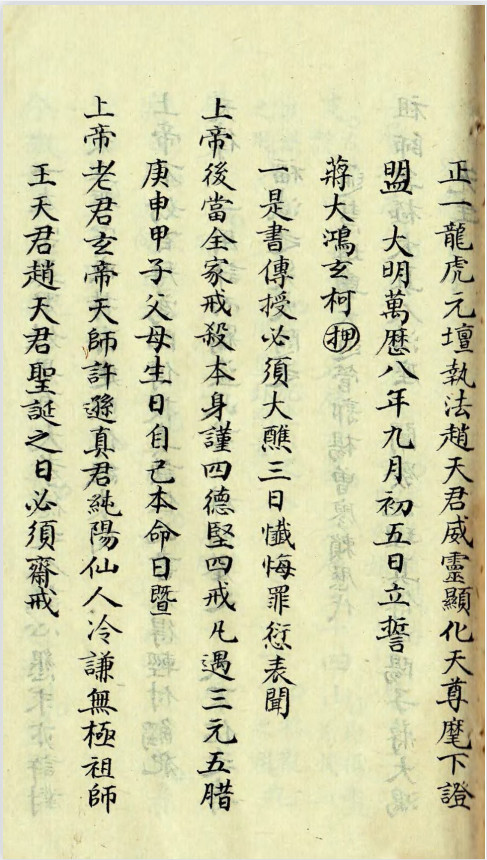 正一龍虎元壇執法趙天君威靈顯化天尊麾下證
盟 大明萬厯八年九月初五日立誓
蔣大鴻玄柯 押
一是書傳授必須大醮三日懺悔罪愆表聞
上帝後當全家戒殺本身謹四德堅四戒凡遇三元五腊
庚申甲子父母生日自己本命日暨
上帝老君玄帝天師許遜真君純陽仙人冷謙無極祖師
王天君趙天君聖誕之日必須齋戒